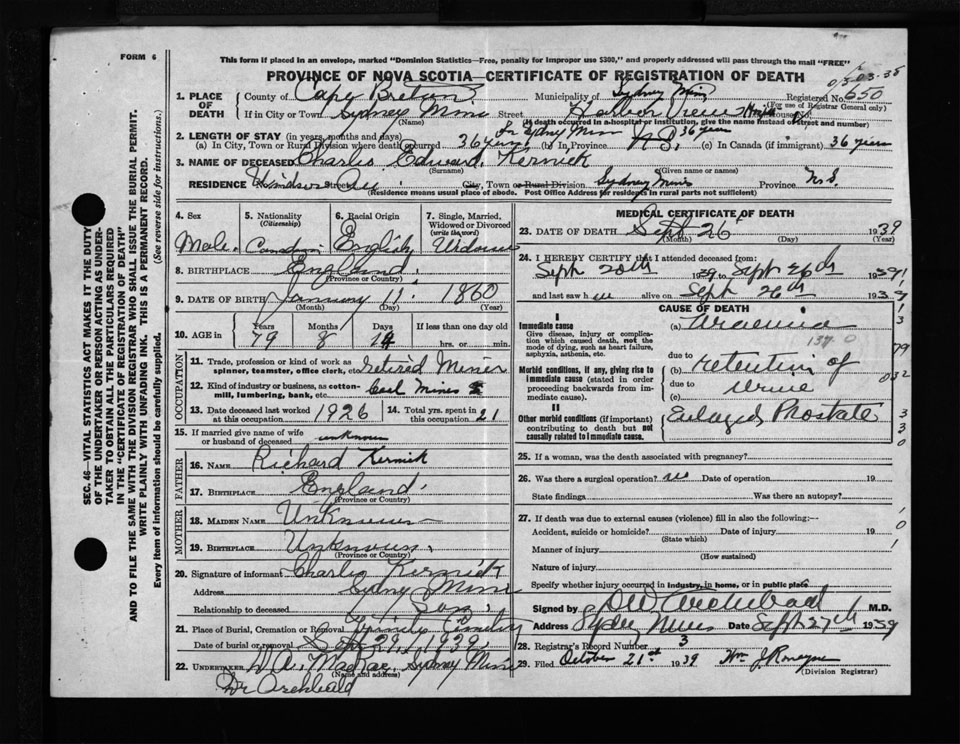 FORM 6
This form if placed in an envelope, marked "Dominion Statistics—Free, penalty for improper use $300," and properly addressed will pass through the mail "FREE"
PROVINCE OF NOVA SCOTIA—CERTIFICATE OF REGISTRATION OF DEATH
03-35
1. PLACE OF DEATH County of Cape Breton Municipality of Sydney Mines Registered No. 650
(For use of Registrar General only)
If in City or Town Sydney Mines Street Harbor View House No.
(Name) (If death occurred in a hospital or institution, give the name instead of street and number)
2. LENGTH OF STAY (in years, months and days) In Sydney Mines
(a) In City, Town or Rural Division where death occurred 36 years (b) in Province N.S. 36 years (c) In Canada (if immigrant) 36 years
3. NAME OF DECEASED Charlie Edward Kernick
(Surname) (Given name or names)
RESIDENCE Windsor Ave Street City, Town or Rural Division Sydney Mines Province N.S.
(Residence means usual place of abode. Post Office Address for residents in rural parts not sufficient)
4. Sex 5. Nationality (Citizenship) 6. Racial Origin 7. Single, Married, Widowed or Divorced (write the word)
Male Canadian English Widower
8. BIRTHPLACE England
(Province or Country)
9. DATE OF BIRTH January 11 1860
(Month) (Day) (Year)
10. AGE in Years Months Days If less than one day old
79 8 14 hrs. or min.
OCCUPATION
11. Trade, profession or kind of work as spinner, teamster, office clerk, etc. retired Miner
12. Kind of industry or business, as cotton-mill, lumbering, bank, etc. Coal Mines
13. Date deceased last worked at this occupation 1926 14. Total yrs. spent in this occupation 21
15. If married give name of wife or husband of deceased unknown
FATHER
16. NAME Richard Kernick
17. BIRTHPLACE England
(Province or Country)
MOTHER
18. MAIDEN NAME Unknown
19. BIRTHPLACE Unknown
(Province or Country)
20. Signature of informant Charlie Kernick
Address Sydney Mines
Relationship to deceased Son
21. Place of Burial, Cremation or Removal Trinity Cemetery
Date of burial or removal Sept 29, 1939
22. UNDERTAKER D A. MacRae, Sydney Mines
(Name and address)
Dr Archbald
MEDICAL CERTIFICATE OF DEATH
23. DATE OF DEATH Sept 26 1939
(Month) (Day) (Year)
24. I HEREBY CERTIFY that I attended deceased from:
Sept 20th 1939 to Sept 26th 1939
and last saw h im alive on Sept 26th 1939
CAUSE OF DEATH
I
Immediate cause
Give disease, injury or complication which caused death, not the mode of dying, such as heart failure, asphyxia, asthenia, etc.
(a) Uraemia
137 0
due to
Morbid conditions, if any, giving rise to immediate cause (stated in order proceeding backwards from immediate cause).
(b) retention of
due to urine
(c)
II
Other morbid conditions (if important) contributing to death but not causally related to immediate cause.
Enlarged Prostate
25. If a woman, was the death associated with pregnancy?
26. Was there a surgical operation? no Date of operation 19
State findings Was there an autopsy?
27. If death was due to external causes (violence) fill in also the following:—
Accident, suicide or homicide? Date of injury 19
(State which)
Manner of injury
(How sustained)
Nature of injury
Specify whether injury occurred in industry, in home, or in public place
Signed by Archibald M.D.
Address Sydney Mines Date Sept 27th 1939
28. Registrar's Record Number 3
29. Filed October 21st 1939 Wm J. Romeyne
(Division Registrar)
SEC. 46—VITAL STATISTICS ACT MAKES IT THE DUTY OF THE UNDERTAKER OR PERSON ACTING AS UNDERTAKER TO OBTAIN ALL THE PARTICULARS REQUIRED IN THE "CERTIFICATE OF REGISTRATION OF DEATH" AND TO FILE THE SAME WITH THE DIVISION REGISTRAR WHO SHALL ISSUE THE BURIAL PERMIT.
WRITE PLAINLY WITH UNFADING INK. THIS IS A PERMANENT RECORD.
Every item of information should be carefully supplied. (See reverse side for instructions.)